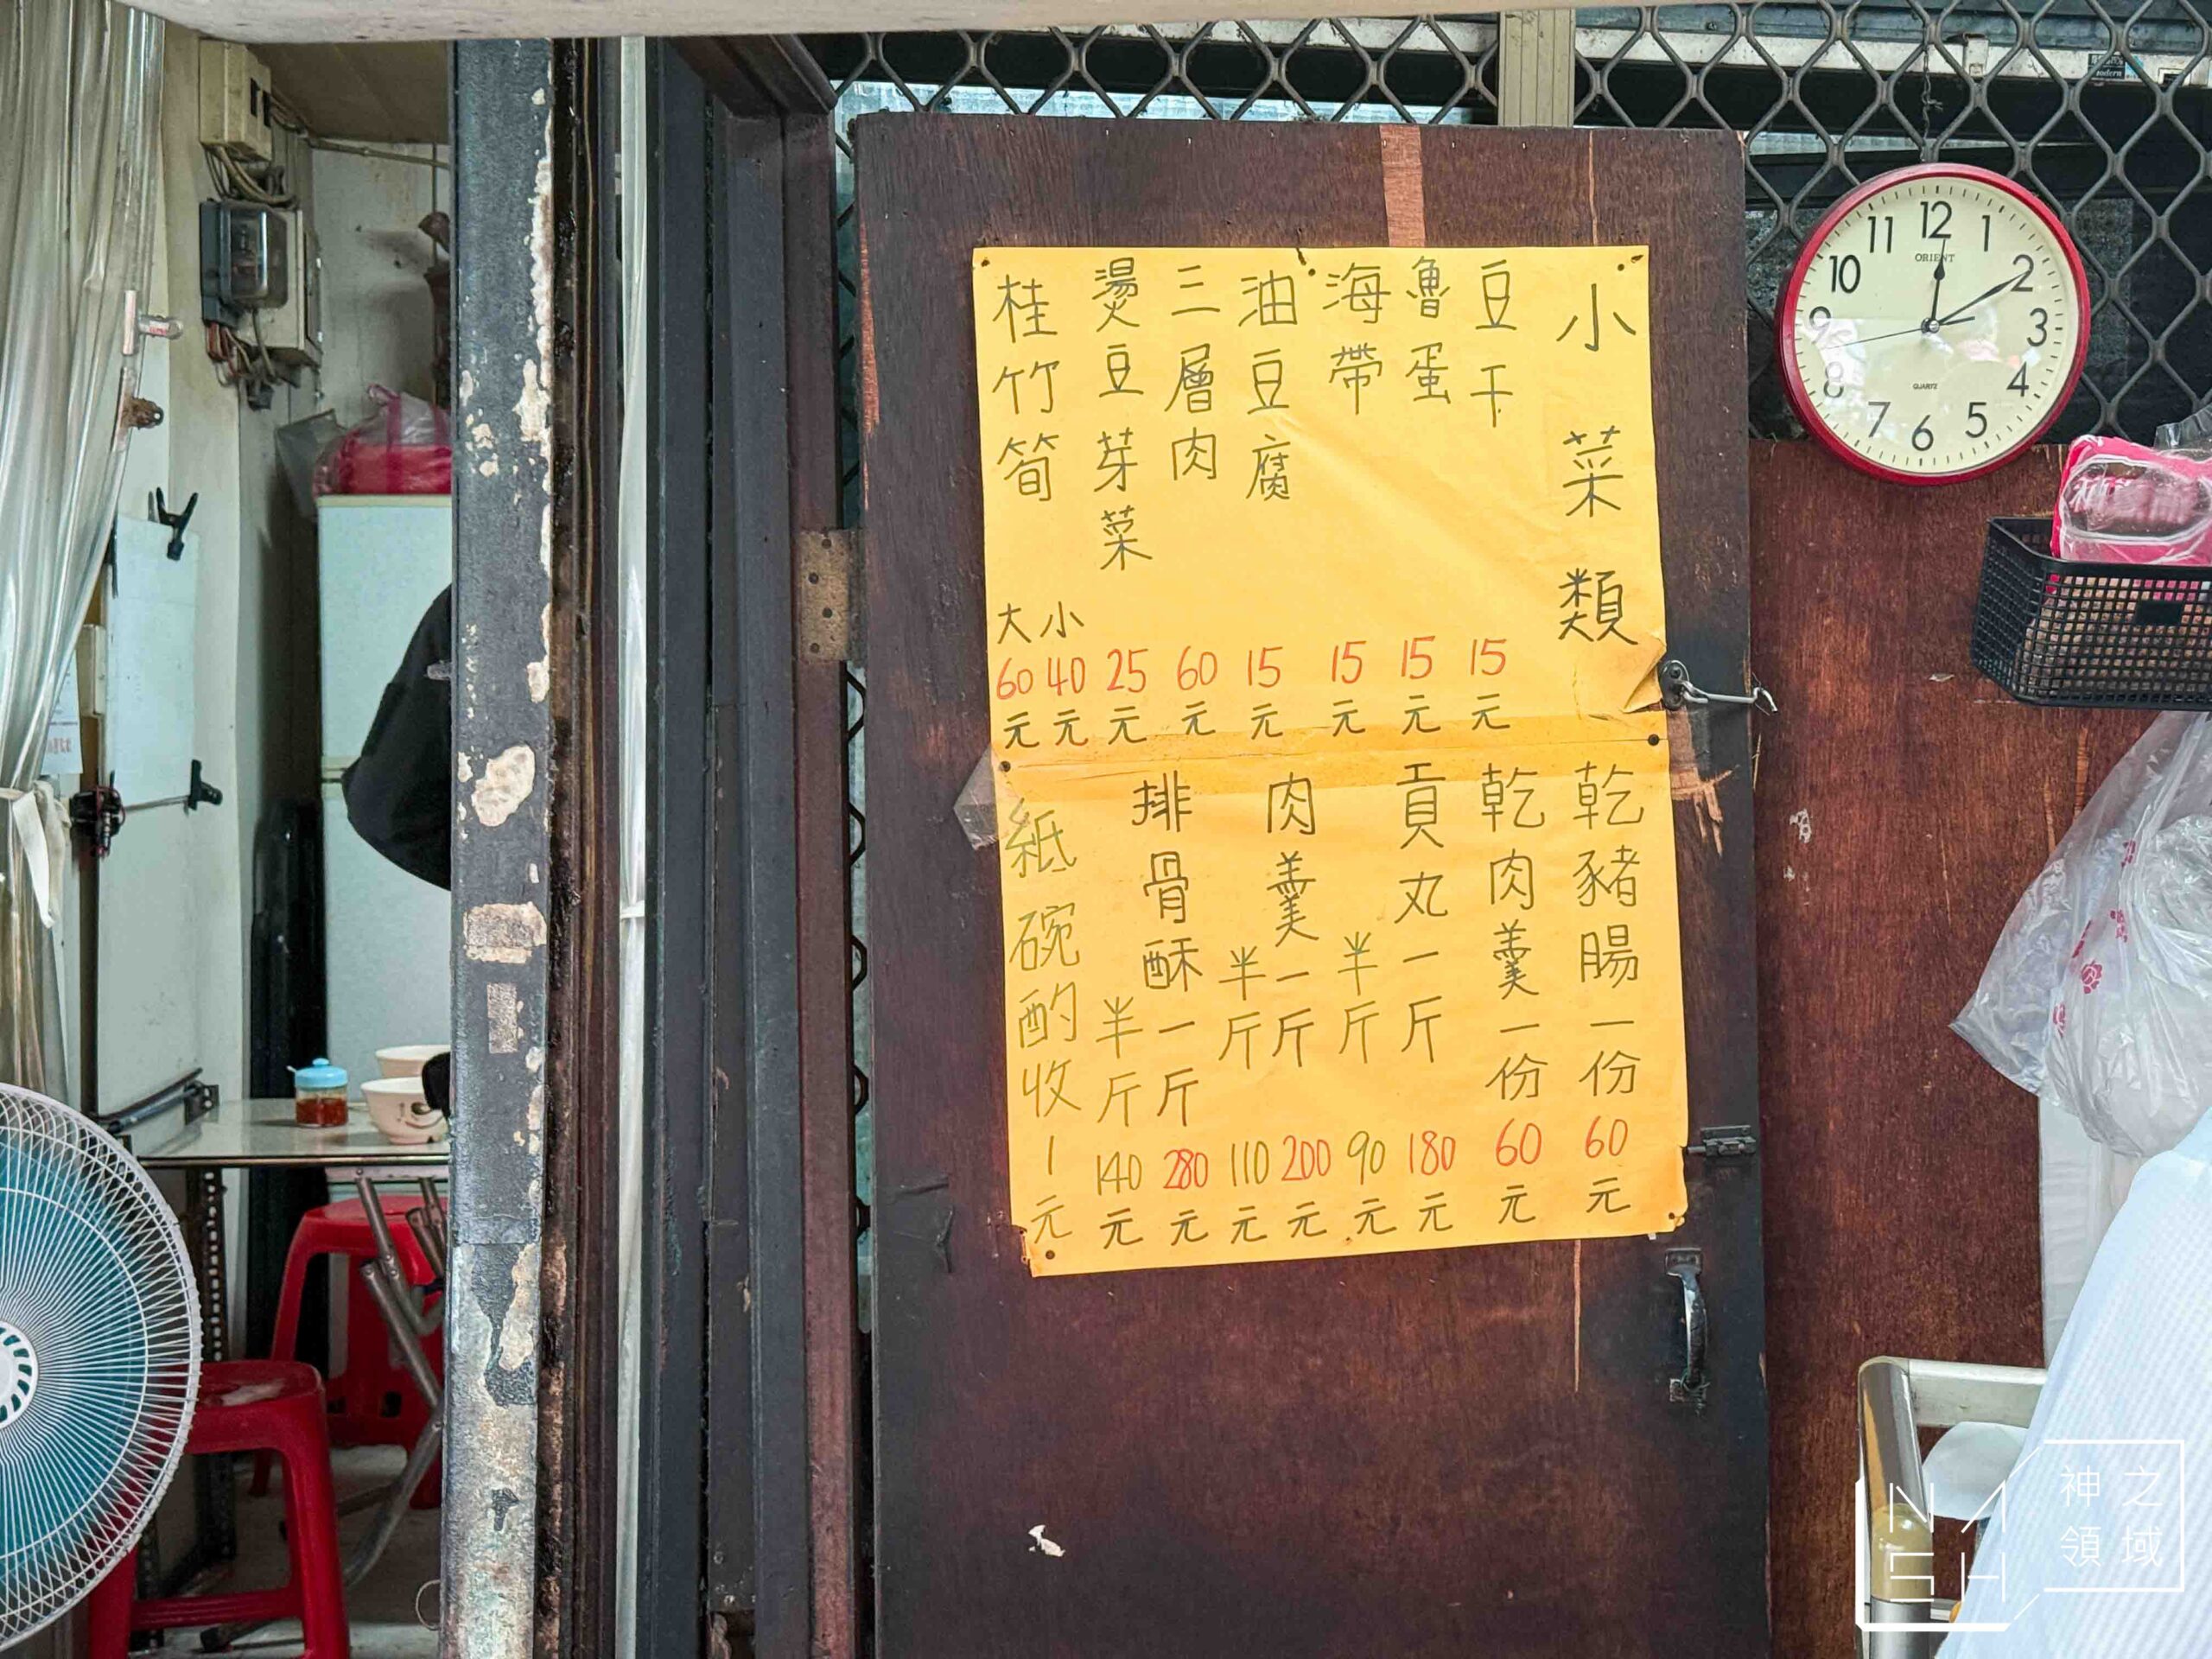 小菜類
豆干 15元
魯蛋 15元
海帶 15元
油豆腐 15元
三層肉 60元
燙豆芽菜 25元
桂竹筍 小 40元
大 60元
乾豬腸一份 60元
乾肉羹一份 60元
貢丸一斤 180元
半斤 90元
肉羹一斤 200元
半斤 110元
排骨酥一斤 280元
半斤 140元
紙碗酌收1元
12
1
2
3
4
5
6
7
8
9
10
11
ORIENT
QUARTZ
NASH
神之領域